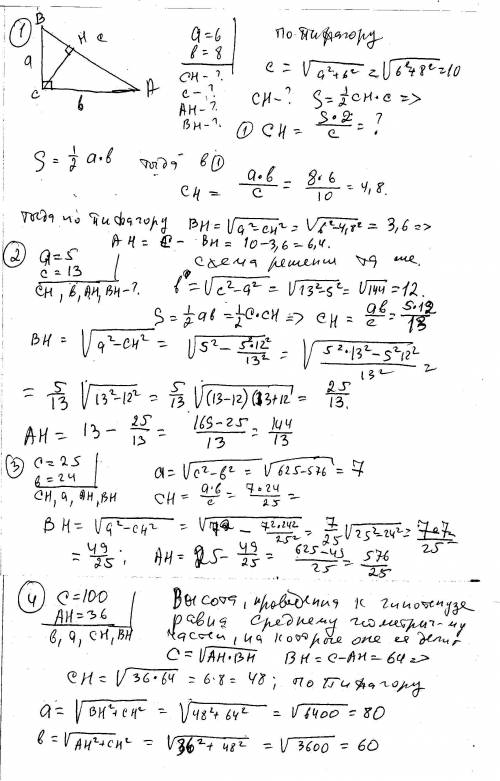 ① B H c a C b A
a=6
b=8
CH-?
c-?
AH-?
BH-?
по Пифагору
c = √a²+b² = √6²+8² = 10
CH-? S=½CH·c =>
① CH = S·2/c = ?
S = ½ a·b тогда в ①
CH = a·b/c = 8·6/10 = 4,8.
тогда по Пифагору BH = √a²-CH² = √6²-4,8² = 3,6 =>
AH = c - BH = 10-3,6 = 6,4.
② a=5
c=13
CH, b, AH, BH-?
схема решения та же.
b = √c²-a² = √13²-5² = √144 = 12.
S = ½ab = ½c·CH => CH = ab/c = 5·12/13
BH = √a²-CH² = √5² - 5²·12²/13² = √5²·13²-5²12²/13² =
= 5/13 √13²-12² = 5/13 √(13-12)(13+12) = 25/13.
AH = 13 - 25/13 = 169-25/13 = 144/13
③ c=25
b=24
CH, a, AH, BH
a = √c²-b² = √625-576 = 7
CH = a·b/c = 7·24/25 =
BH = √a²-CH² = √7² - 7²·24²/25² = 7/25 √25²-24² = 7·7/25 =
= 49/25; AH = 25 - 49/25 = 625-49/25 = 576/25
④ c=100
AH=36
b, a, CH, BH
Высота, проведения к гипотенузе
равна среднему геометрич-му
частей, на которые она ее делит
C = √AH·BH BH = c-AH = 64 =>
CH = √36·64 = 6·8 = 48; по Пифагору
a = √BH²+CH² = √48²+64² = √6400 = 80
b = √AH²+CH² = √36²+48² = √3600 = 60